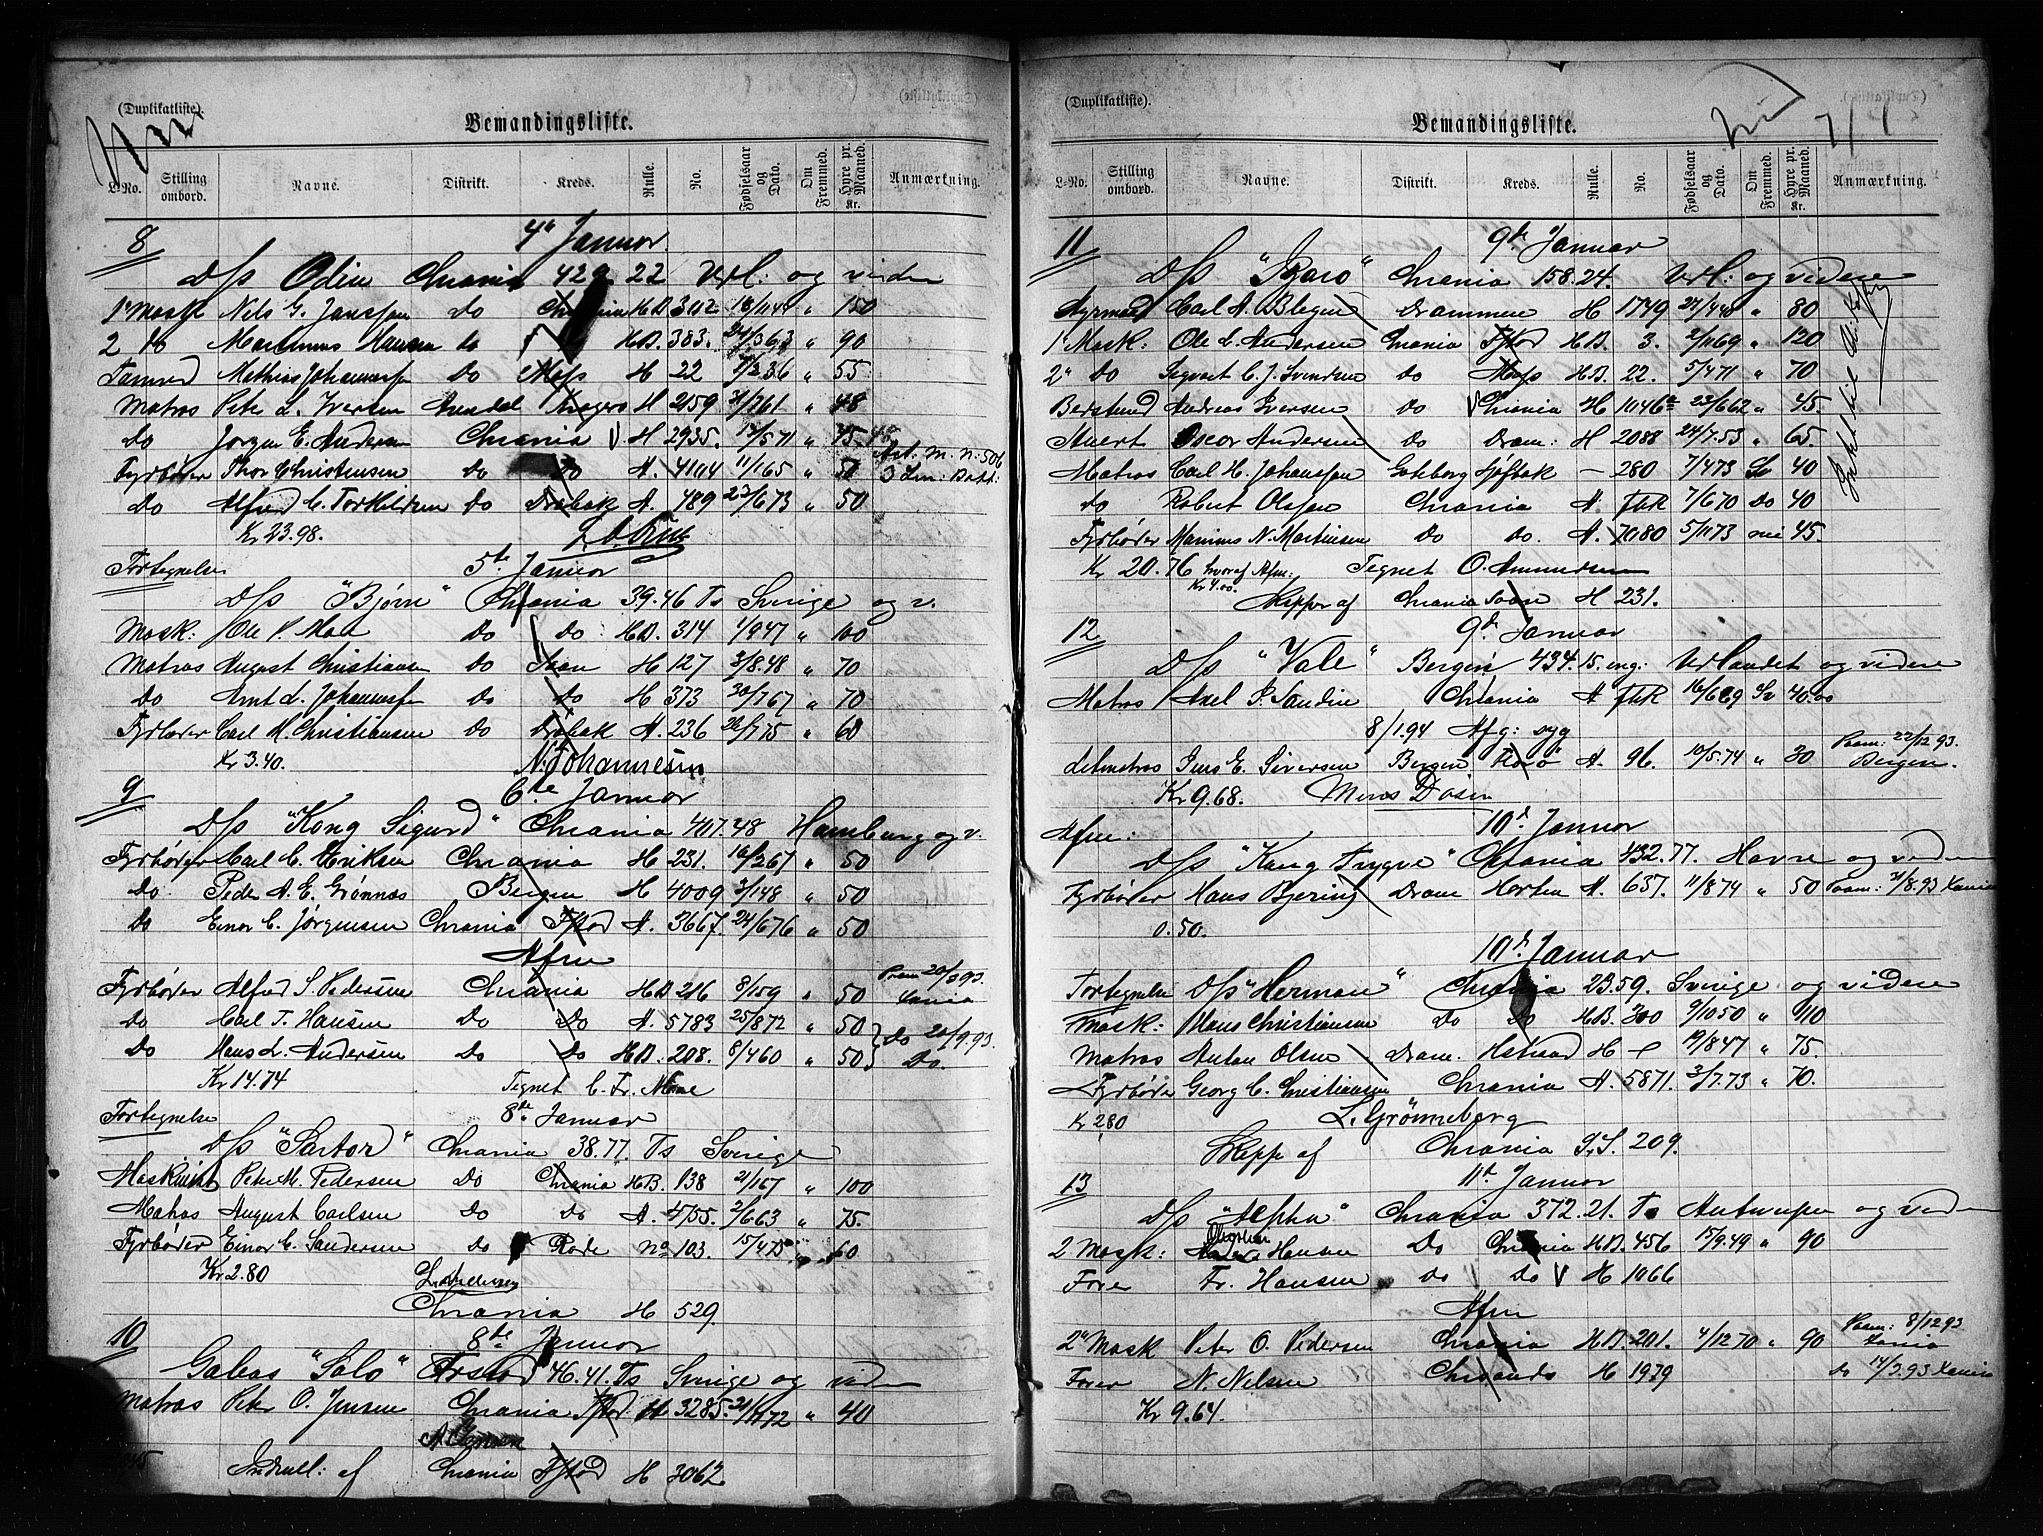 (Duplikatliste).
Bemandingsliste.
L-No. Stilling ombord. Navne. Distrikt. Kreds. Rulle. No. Fødselsaar og Dato. Om Fremmed. Hyre pr. Maaned. Kr. Anmærkning.
8 4de Januar
D/s Odin Chrania 429.22 Url: og videre
1ste Mask Nels G. Janssen do Chrania HD 3 " 150
2 do Martinius Hansen do HD. 383. 24/3 63 " 90
Mathias Johannessen do Moss H 22 7/2 36 " 55
Matros Peter L. Iversen Arendal Kragerø H 2159 31/7 61 " 48
do Jørgen E. Andersen Chrania V H 2935. 12/5 71 " 45
Fyrbøder Thor Christensen do do A. 4104 11/1 65 " 50
do Alfred C. Torkildsen do Drøbak A. 489 23/6 73 " 50
Kr 23.98.
Fortegnelse 5te Januar
D/s "Bjørn" Chrania 39.46 Ts Sverige og v.
Mask: Ole P. Moe do do HD. 314 1/9 47 " 100
Matros August Christiansen do Soon H 127 3/8 48 " 70
do Arnt L. Johannessen do do H 373 20/7 67 " 70
Fyrbøder Carl M. Christiansen do Drøbak A. 236 26/7 75 " 60
Kr 3.40. N. Johannesen
9 6te Januar
D/s "Kong Sigurd" Chrania 417.48 Hamburg og v.
Fyrbøder Carl C. Eriksen Chrania H 231. 16/2 67 " 50
do Peder A. E. Grønnæs Bergen H 4009 3/1 48 " 50
do Einar C. Jørgensen Chrania Fstad A. 3667. 24/6 76 " 50
Afm
Fyrbøder Alfred S. Pedersen Chrania HD 216 8/1 59 " 50 Paam 20/9 93. Xania
do Carl T. Hansen do do A. 5783 25/8 72 " 50 do 20/9.93.
do Hans L. Andersen do do HD. 208. 8/4 60 " 50 do.
Kr 14.74 Tegnet C. Fr. Moe
Fortegnelse 8de Januar
D/s "Sartor" Chrania 38.77. Ts Sverige
Maskinist Peter M. Pedersen do Chrania HB. 138 21/1 67 " 100
Matros August Carlsen do do A. 4755. 2/6 63 " 75.
Fyrbøder Einar C. Sandersen do Rode No 103. 15/4 75 " 60
Kr 2.80
Chrania H 529.
10 8de Januar
Galeas "Solo" Fstad 46.41. Ts Sverige og videre
Matros Peter O. Jensen Chrania Fstad H 3285. 21/11 72 " 40
Indrull: af Chrania Fstad H 3062
(Duplikatliste).
Bemandingsliste.
L-No. Stilling ombord. Navne. Distrikt. Kreds. Rulle. No. Fødselsaar og Dato. Om Fremmed. Hyre pr. Maaned. Kr. Anmærkning.
11 9de Januar
D/s "Baro" Chrania 158.24. Url: og videre
Styrmand Carl A. Blegen Drammen H 1749 21/4 48 " 80
1ste Mask: Ole L. Andersen Chrania Fstad HB. 3. 2/11 69 " 120
2de do Sigvart C. J. Svendsen do Moss HD. 22. 5/4 71 " 70
Andreas Iversen do V Chrania H 1046a 23/6 62 " 45.
Stuert Oscar Andersen do Dram: H 2088 24/7.53 " 65.
Matros Carl H. Johanssen Gøteborg — 280 7/4 73 Sv 40
do Robert Olsen Chrania A. Fbk 7/6 70 do 40
Fyrbøder Marius N. Martinsen do do. A. 7080 5/11 73 nei 45.
Kr 20.76 hvoraf Afm: Kr 4.00. Tegnet O. Amundsen
Skipper af Chrania Soon H 231.
12 9de Januar
D/s "Vale" Bergen 434.15. eng: Urlandet og videre
Matros Axel P. Sandin Chrania A Fbk 16/6 69 Sv 40.00
8/1.94 Afg: syg
Letmatros Jens E. Siversen Bergen Florø A. 96. 10/5.74 " 30 Paam: 22/12 93. Bergen.
Kr 9.68.
Afm: 10de Januar
D/s "Kong Trygve" Chrania 432.77. Havre og videre
Fyrbøder Hans Bjering Dram Horten A. 637. 11/8 74 " 50 Paam: 31/8.93 Xania
0.50.
10de Januar
Fortegnelse D/s "Herman" Chrania 23.59. Sverige og videre
1 Mask: Hans Christiansen do do HB. 300 9/10 50 " 110
Matros Anton Olsen Dram. H 19/8 47 " 75.
Fyrbøder Georg C. Christiansen Chrania A. 5871. 3/7.73 " 70.
Kr 2.80 L. Grønneberg
Skipp af Chrania S.S. 209.
13 11te Januar
D/s "Alpha" Chrania 372.21. Ts Antwerpen og videre
2 Mask: Hansen do Chrania HD. 456 13/9.49 " 90
Fr. Hansen do do V H 1066
Afm
2de Mask Peter O. Pedersen Chrania HD. 201. 4/12 70 " 90 Paam: 8/12 93 Xania
N. Nelsen Chrsands H 1939 do 14/3.93 Xania
Kr 9.64.